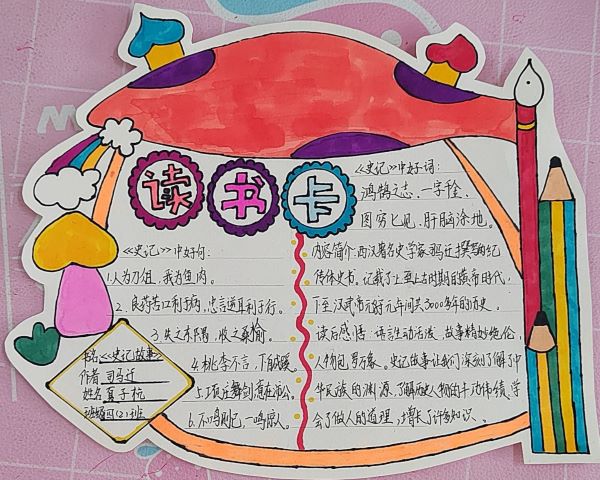 读书卡
《史记》中好词:
鸿鹄之志、一字千金、
图穷匕见、肝脑涂地。
《史记》中好句:
1.人为刀俎,我为鱼肉。
2.良药苦口利于病,忠言逆耳利于行。
3.失之东隅,收之桑榆。
4.桃李不言,下自成蹊
5.项庄舞剑意在沛公
6.不鸣则已,一鸣惊人。
内容简介:西汉著名史学家司马迁撰写的纪
传体史书。记载了上至上古时期黄帝时代,
下至汉武帝元狩元年间共3000多年的历史。
读后感悟:语言生动活泼、故事精妙绝伦,
人物包罗万象。史记故事让我们深刻了解了中
华民族的渊源,了解历史人物的丰功伟绩,学
会了做人的道理,增长了许多知识。
书名《史记故事》
作者 司马迁
姓名 夏子杭
班级四(2)班